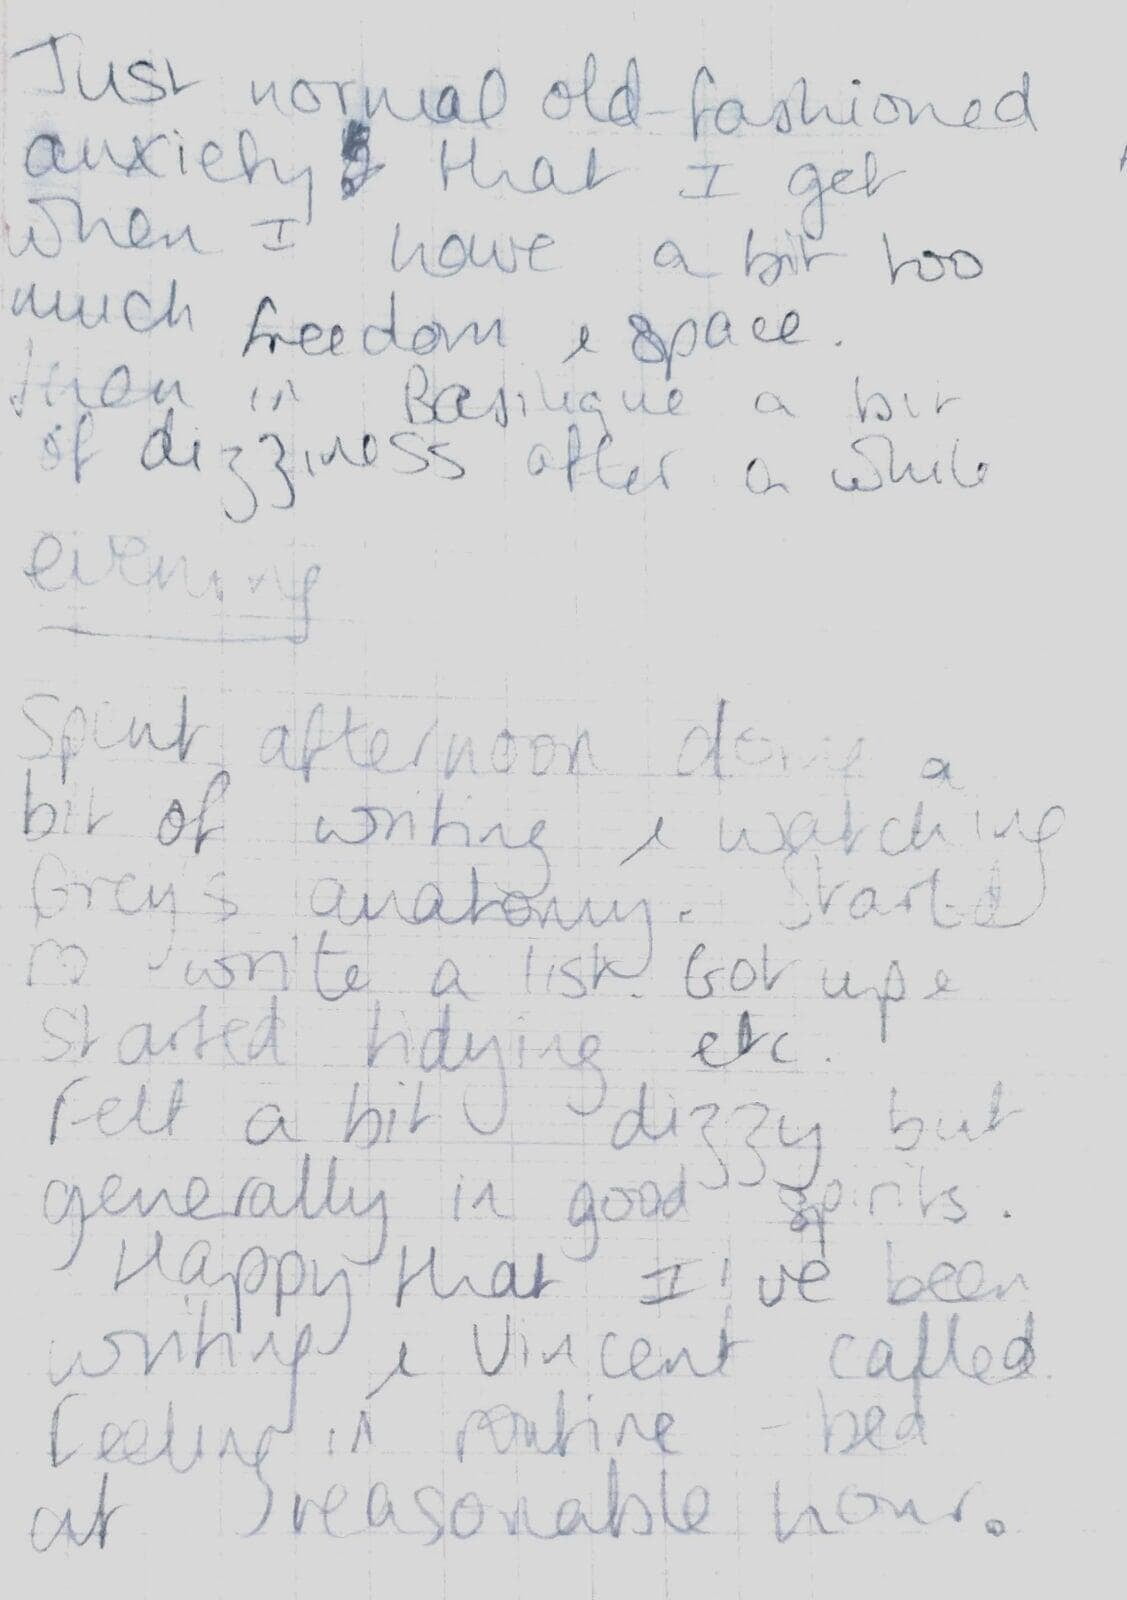 Just normal old-fashioned
anxiety that I get
when I have a bit too
much freedom & space.
then in Basilique a bit
of dizziness after a while
evening
Spent afternoon doing a
bit of writing & watching
Grey's anatomy. Started
to write a list. Got up &
started tidying etc.
Felt a bit dizzy but
generally in good spirits.
Happy that I've been
writing & Vincent called.
Feeling in routine - bed
at reasonable hour.